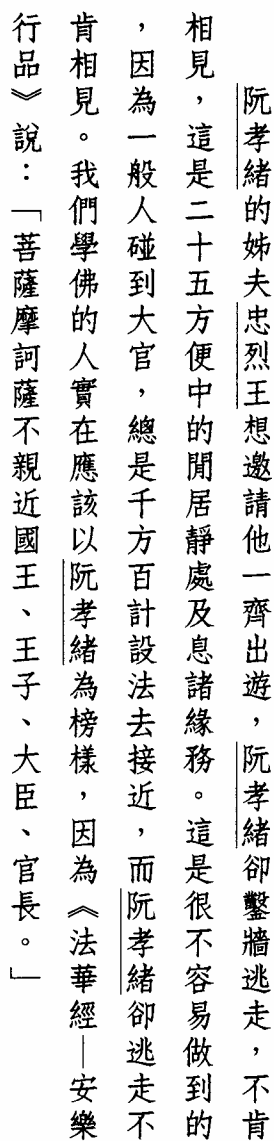 阮孝緒的姊夫忠烈王想邀請他一齊出遊，阮孝緒卻鑿牆逃走，不肯
相見，這是二十五方便中的閒居靜處及息諸緣務。這是很不容易做到的
，因為一般人碰到大官，總是千方百計設法去接近，而阮孝緒卻逃走不
肯相見。我們學佛的人實在應該以阮孝緒為榜樣，因為《法華經—安樂
行品》說：「菩薩摩訶薩不親近國王、王子、大臣、官長。」